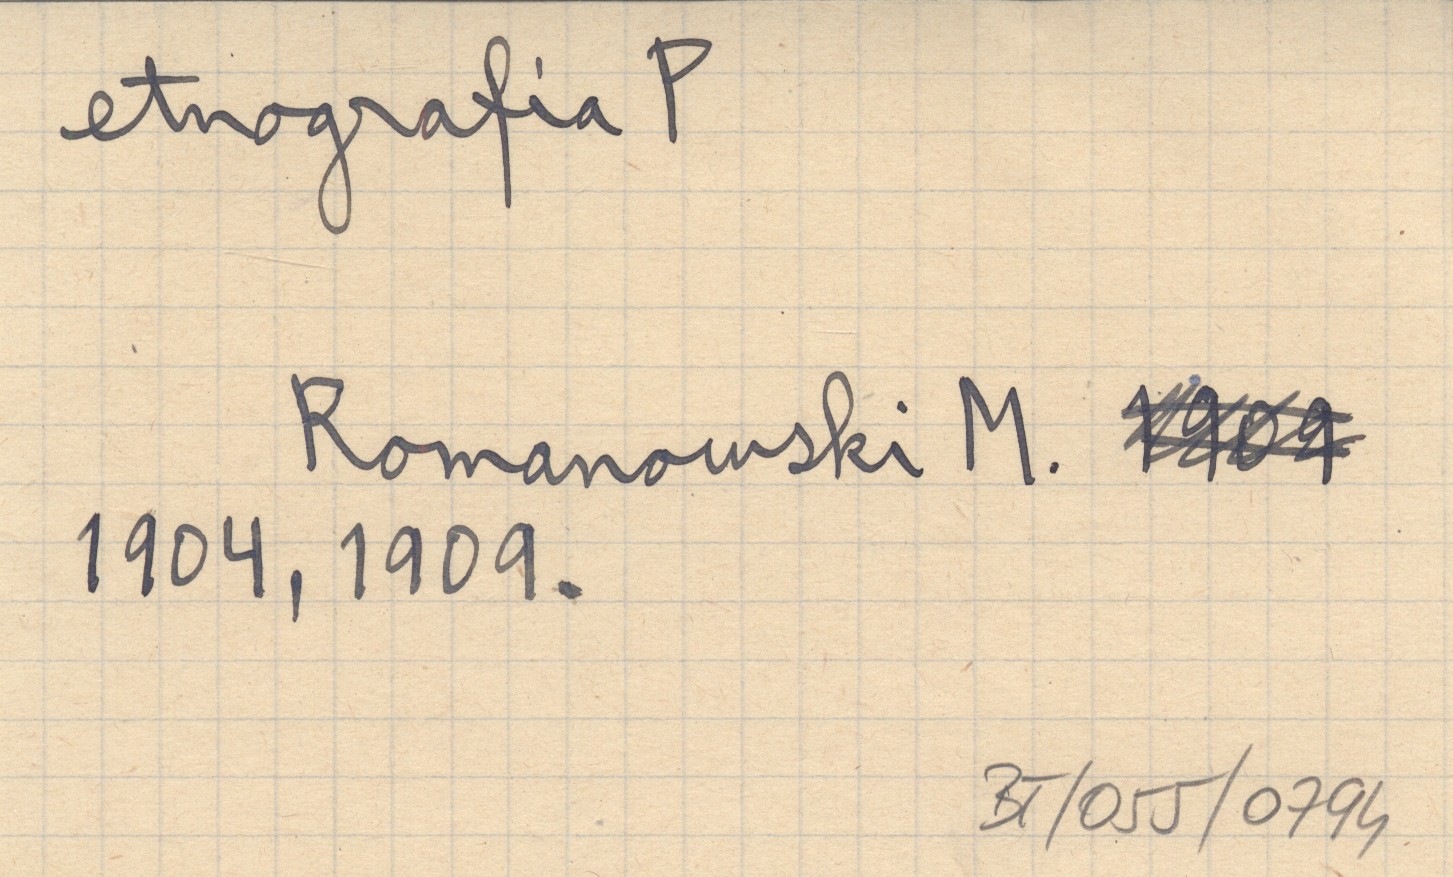 etnografia P
Romanowski M. 1909
1904, 1909.
BT/055/0794